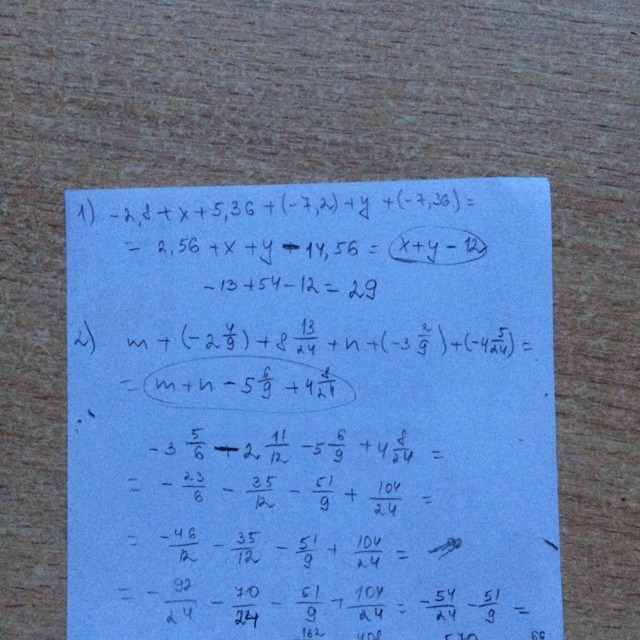 1) -2,8 + x + 5,36 + (-7,2) + y + (-7,36) =
= 2,56 + x + y - 14,56 = x + y - 12
-13 + 54 - 12 = 29
2) m + (-2 4/9) + 8 13/24 + n + (-3 2/9) + (-4 5/24) =
= m + n - 5 6/9 + 4 8/24
-3 5/6 - 2 11/12 - 5 6/9 + 4 8/24 =
= - 23/6 - 35/12 - 51/9 + 104/24 =
= -46/12 - 35/12 - 51/9 + 104/24 =
= - 92/24 - 70/24 - 51/9 + 104/24 = -54/24 - 51/9 =